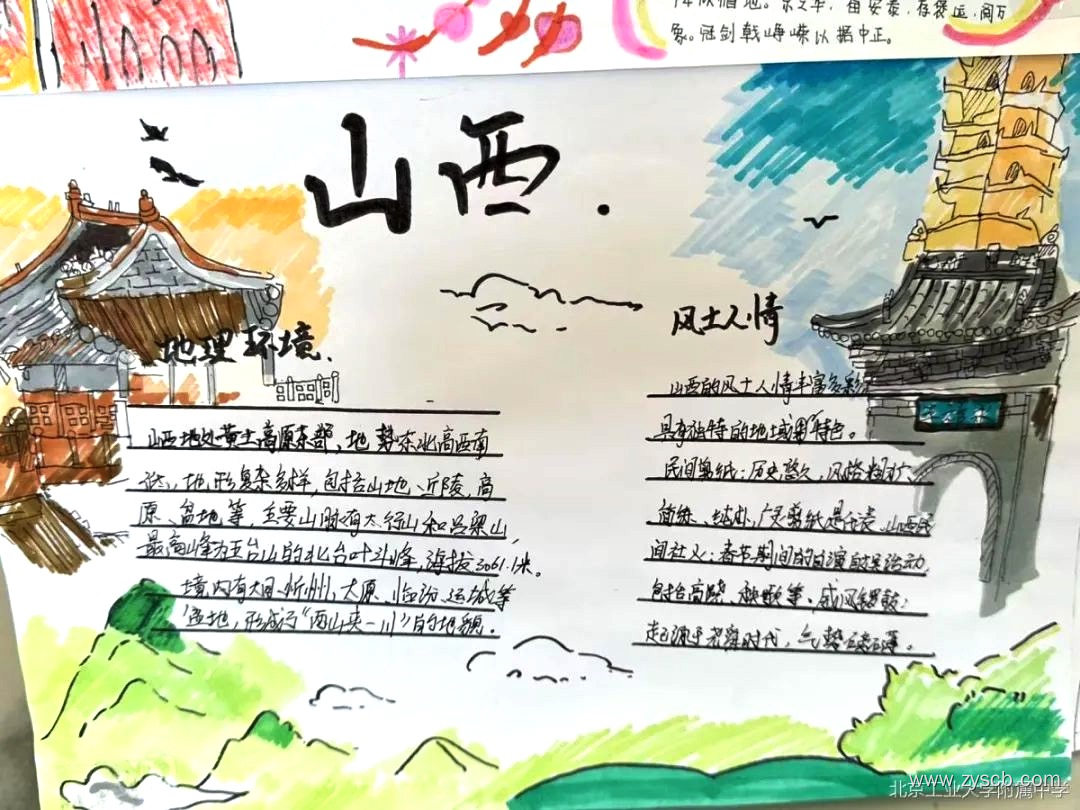 存袋运,阅万
象。冠剑戟峥嵘以据中正。
山西.
地理环境.
山西地处黄土高原东部,地势东北高西南
低,地形复杂多样,包括山地、丘陵、高
原、盆地等,主要山脉有太行山和吕梁山,
最高峰为五台山的北台叶斗峰,海拔3061.1米。
境内有大同、忻州、太原、临汾、运城等
盆地,形成了“两山夹一川”的地貌。
风土人情
山西的风土人情丰富多彩,
具有独特的地域特色。
民间剪纸:历史悠久,风格粗犷、
简练、广灵剪纸是代表、山西民
间社火:春节期间的自演自娱活动,
包括高跷、秧歌等。威风锣鼓:
起源于尧舜时代,气势磅礴。
www.zyscb.com
北京工业大学附属中学